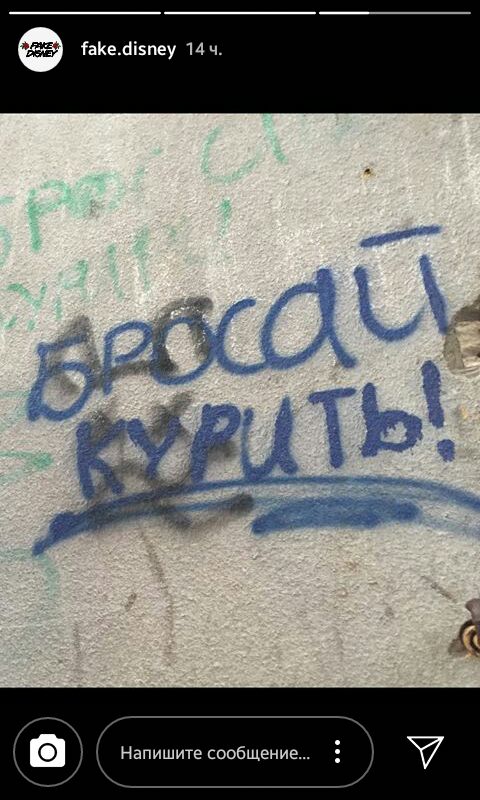 FAKE DISNEY
fake.disney 14 ч.
БРОСАЙ
КУРИТЬ!
Напишите сообщение...